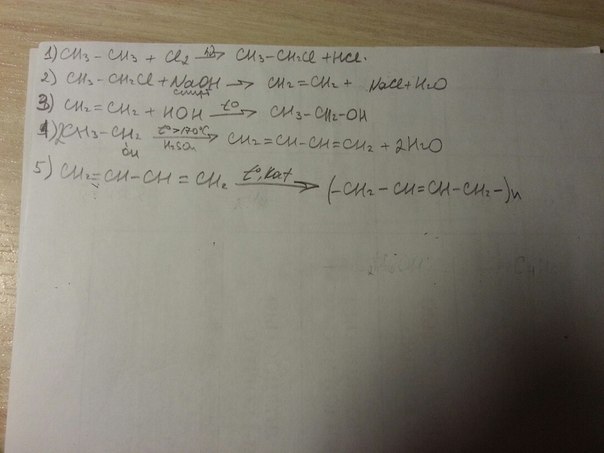 1) CH3 – CH3 + Cl2 hν→ CH3 – CH2Cl + HCl.
2) CH3 – CH2Cl + NaOH спирт → CH2=CH2 + NaCl + H2O
3) CH2=CH2 + HOH t°→ CH3 – CH2 – OH
4) 2CH3 – CH2 OH t°>170°C H2SO4 → CH2=CH–CH=CH2 + 2H2O
5) CH2=CH–CH=CH2 t°, kat → (–CH2 – CH=CH–CH2–)n